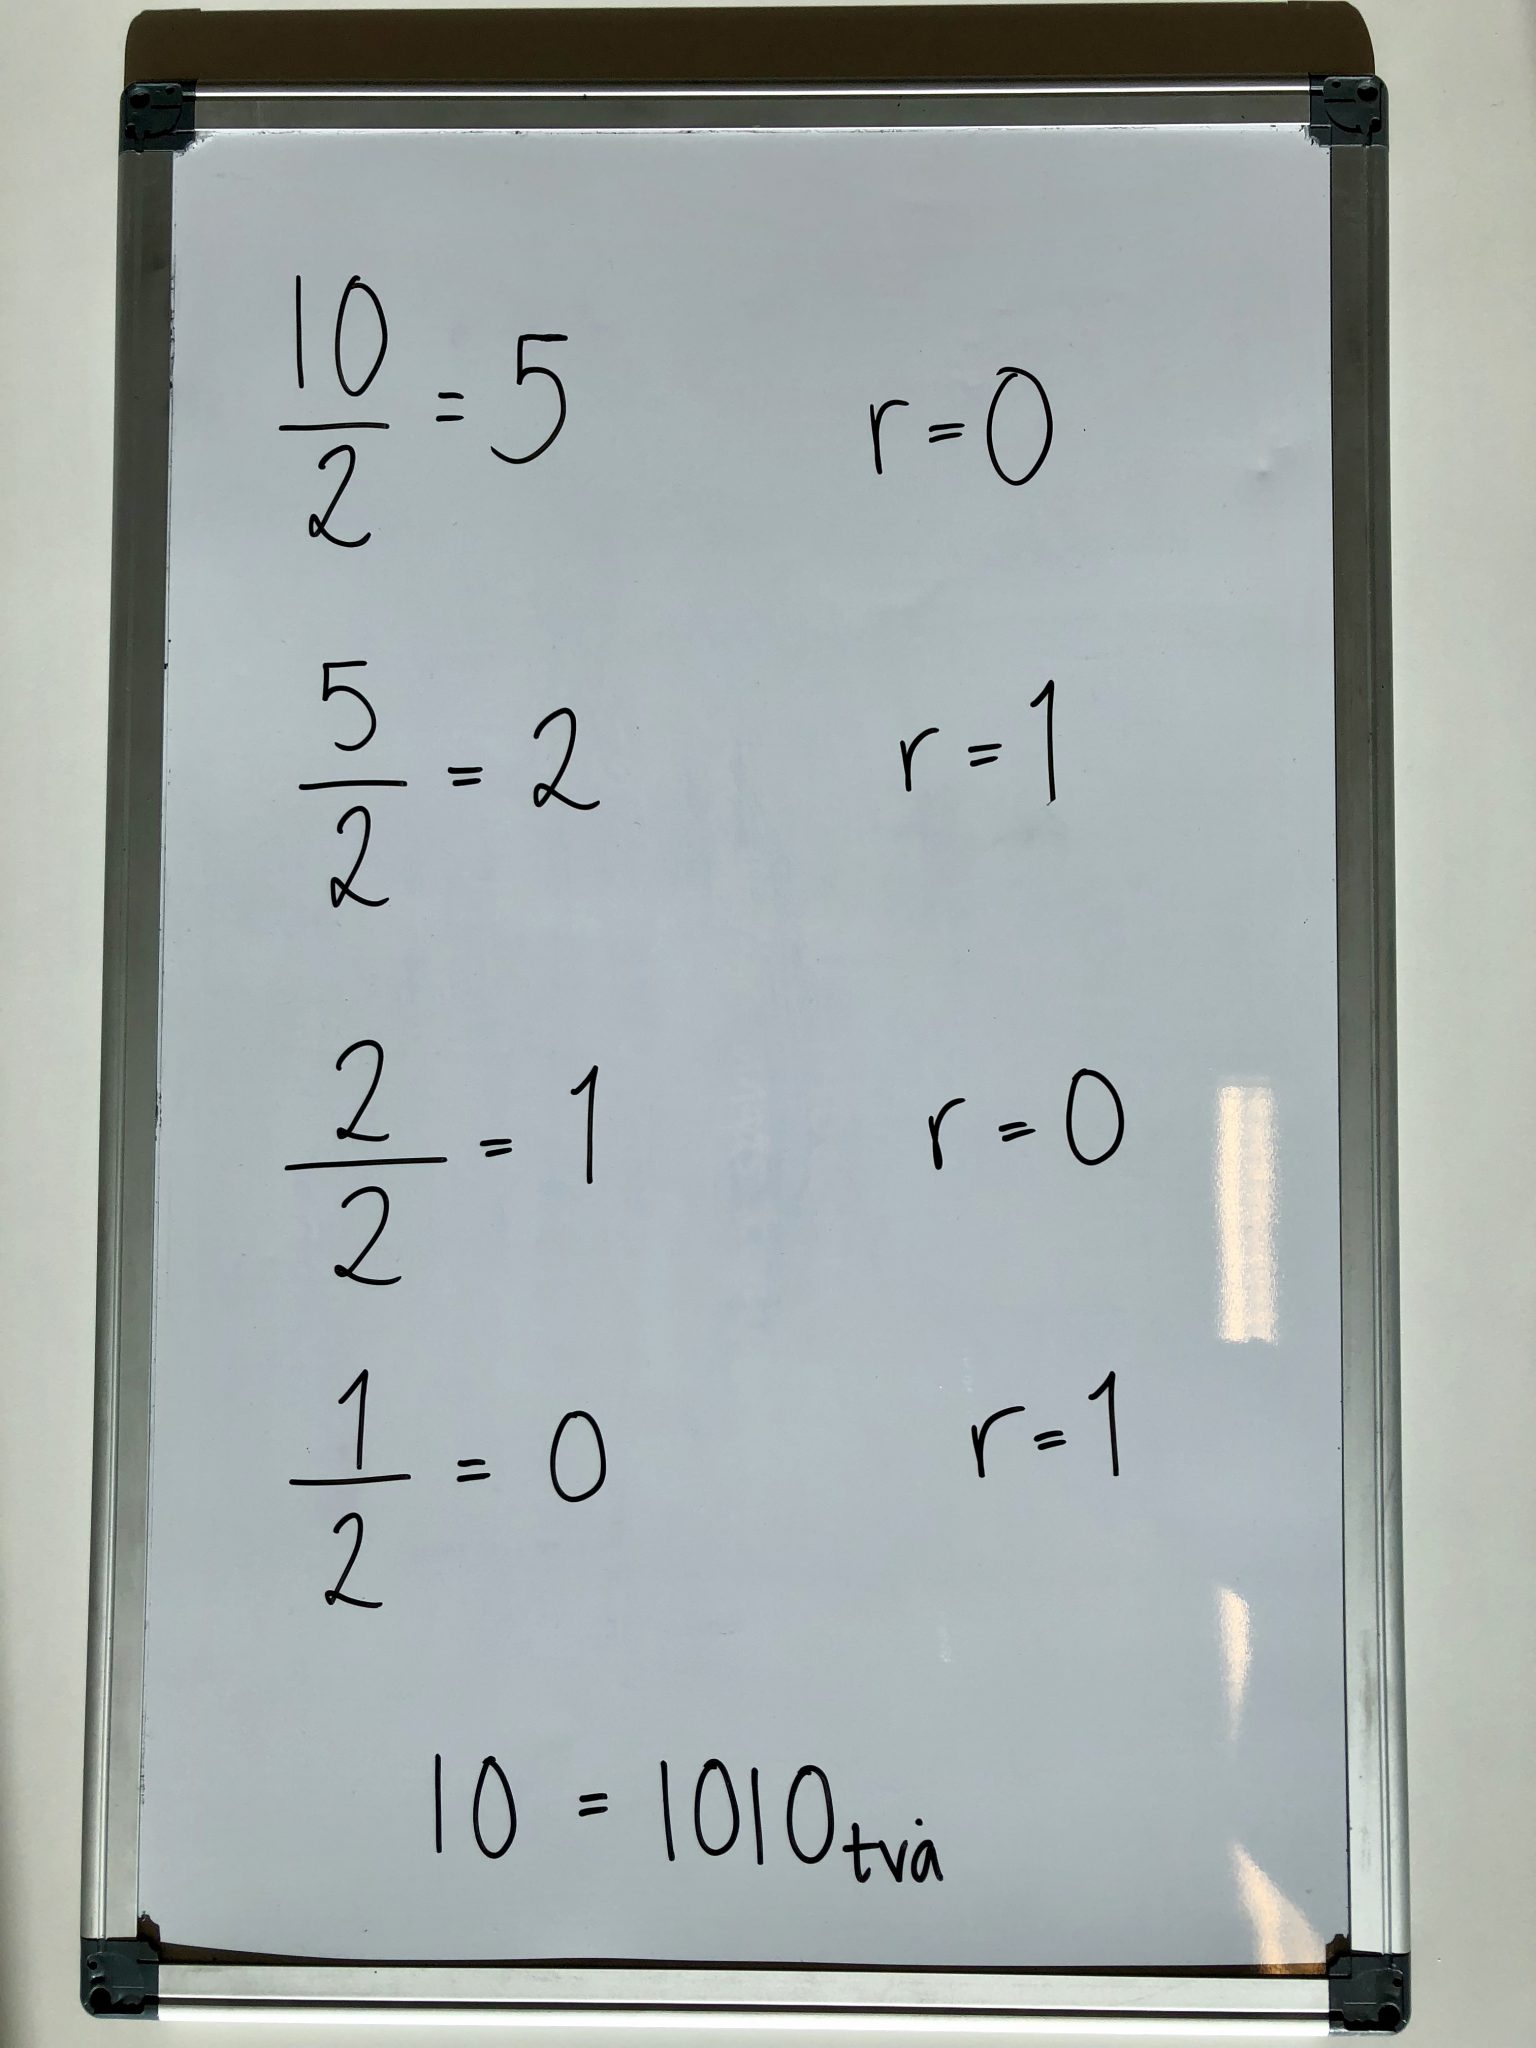 10/2 = 5 r = 0
5/2 = 2 r = 1
2/2 = 1 r = 0
1/2 = 0 r = 1
10 = 1010två